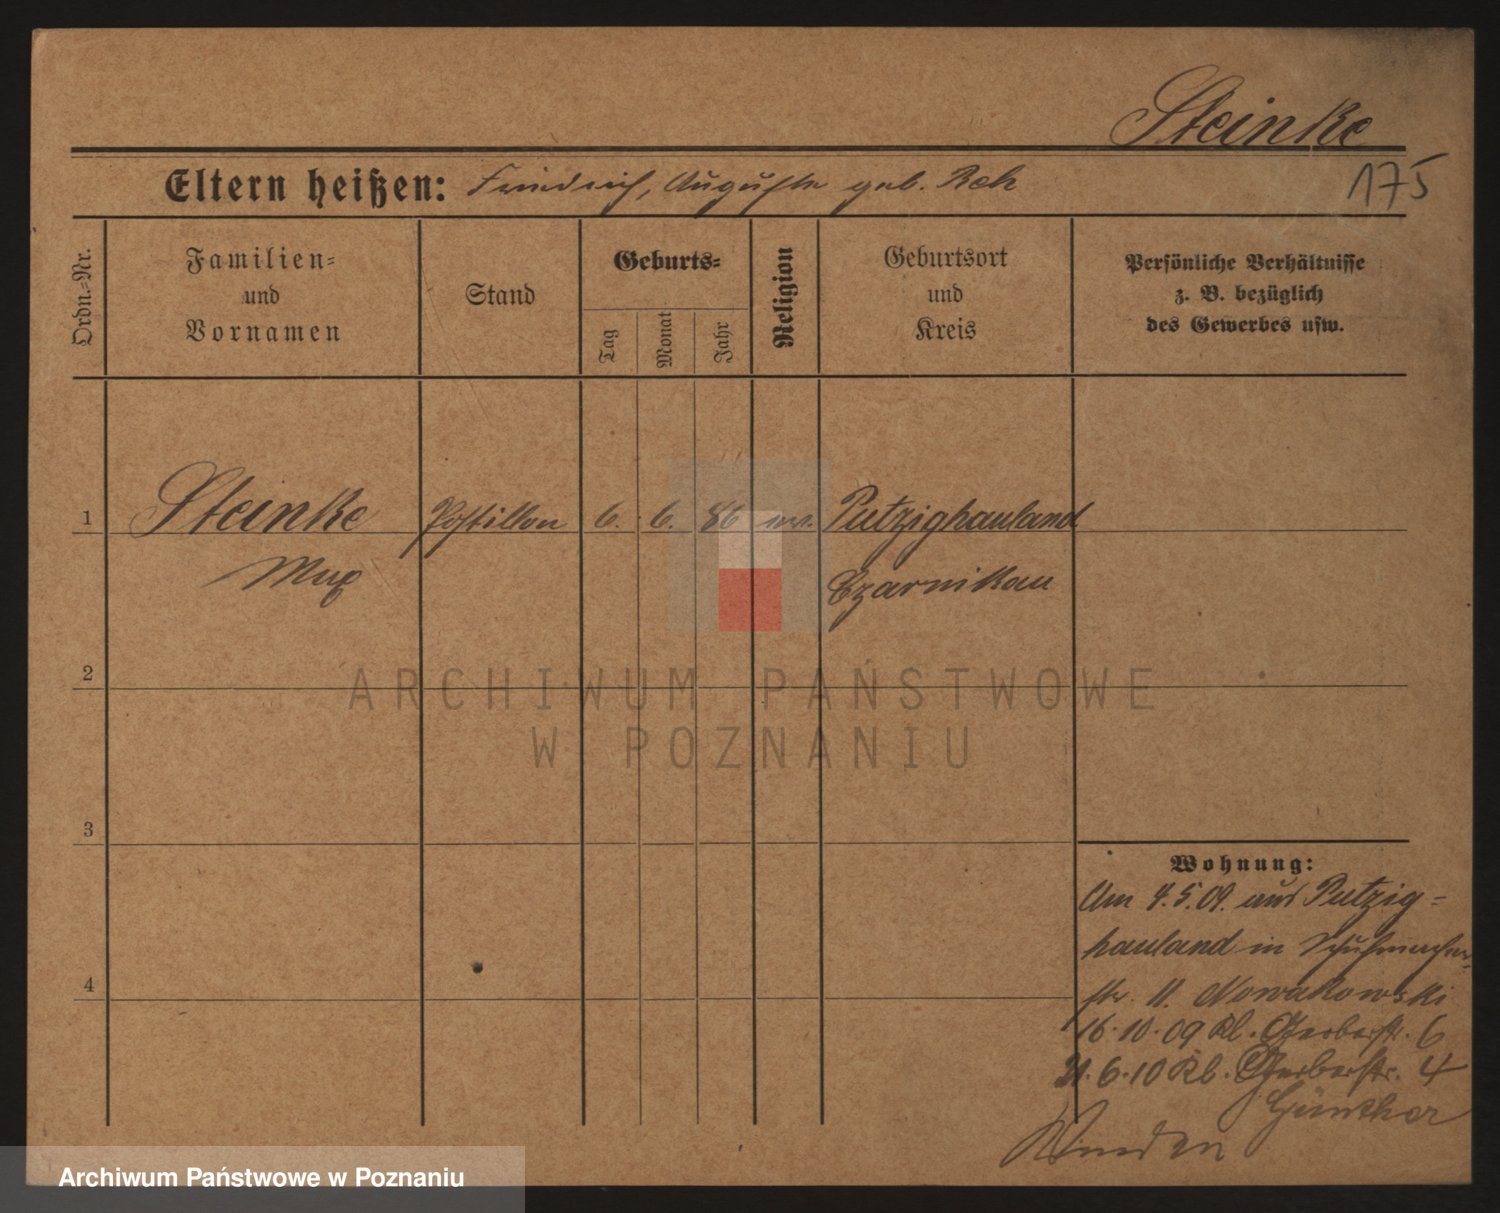 Steinke
175
Eltern heißen: Friedrich, Auguste geb. Reh
Ordn.-Nr.
Familien-
und
Vornamen
Stand
Geburts-
Tag
Monat
Jahr
Religion
Geburtsort
und
Kreis
Persönliche Verhältnisse
z. B. bezüglich
des Gewerbes usw.
1 Steinke Postillon 6. 6. 86 ev. Putzighauland
Max Czarnikau
2
3
4
ARCHIWUM PAŃSTWOWE
W POZNANIU
Wohnung:
Am 4.5.09. aus Putzig-
hauland in Schuhmacher-
str. 11. Nowakowski
16.10.09 Kl. Gerberstr. 6
21.6.10 Kl. Gerberstr. 4
Günther
Archiwum Państwowe w Poznaniu